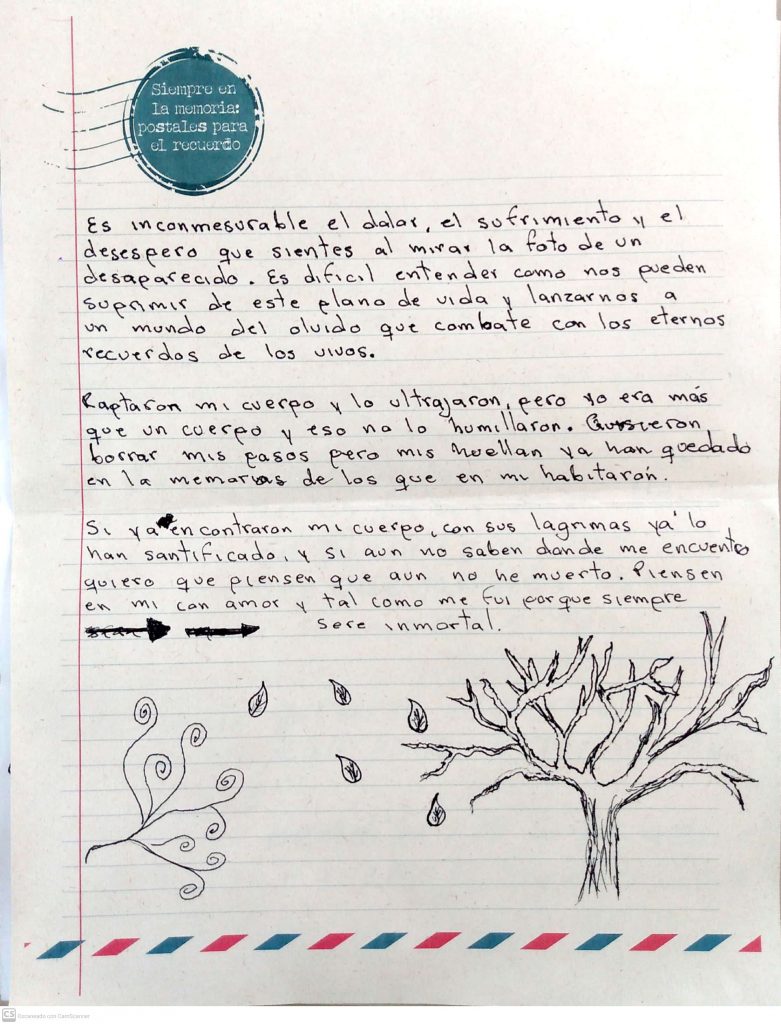 Siempre en
la memoria:
postales para
el recuerdo
Es inconmesurable el dolor, el sufrimiento y el
desespero que sientes al mirar la foto de un
desaparecido. Es dificil entender como nos pueden
suprimir de este plano de vida y lanzarnos a
un mundo del olvido que combate con los eternos
recuerdos de los vivos.
Raptaron mi cuerpo y lo ultrajaron, pero yo era más
que un cuerpo y eso no lo humillaron. Quisieron
borrar mis pasos pero mis huellan ya han quedado
en la memorias de los que en mi habitarón.
Si ya encontraron mi cuerpo, con sus lagrimas ya lo
han santificado, y si aun no saben donde me encuentro
quiero que piensen que aun no he muerto. Piensen
en mi con amor y tal como me fui porque siempre
sere inmortal.
CS Escaneado con CamScanner